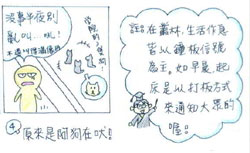 沒事半夜別
亂叫..吼!
④ 原來是阿狗在吠!
註:在叢林,生活作息
皆以鐘板信號
為主。如早晨起
床是以打板方式
來通知大眾的
喔!!